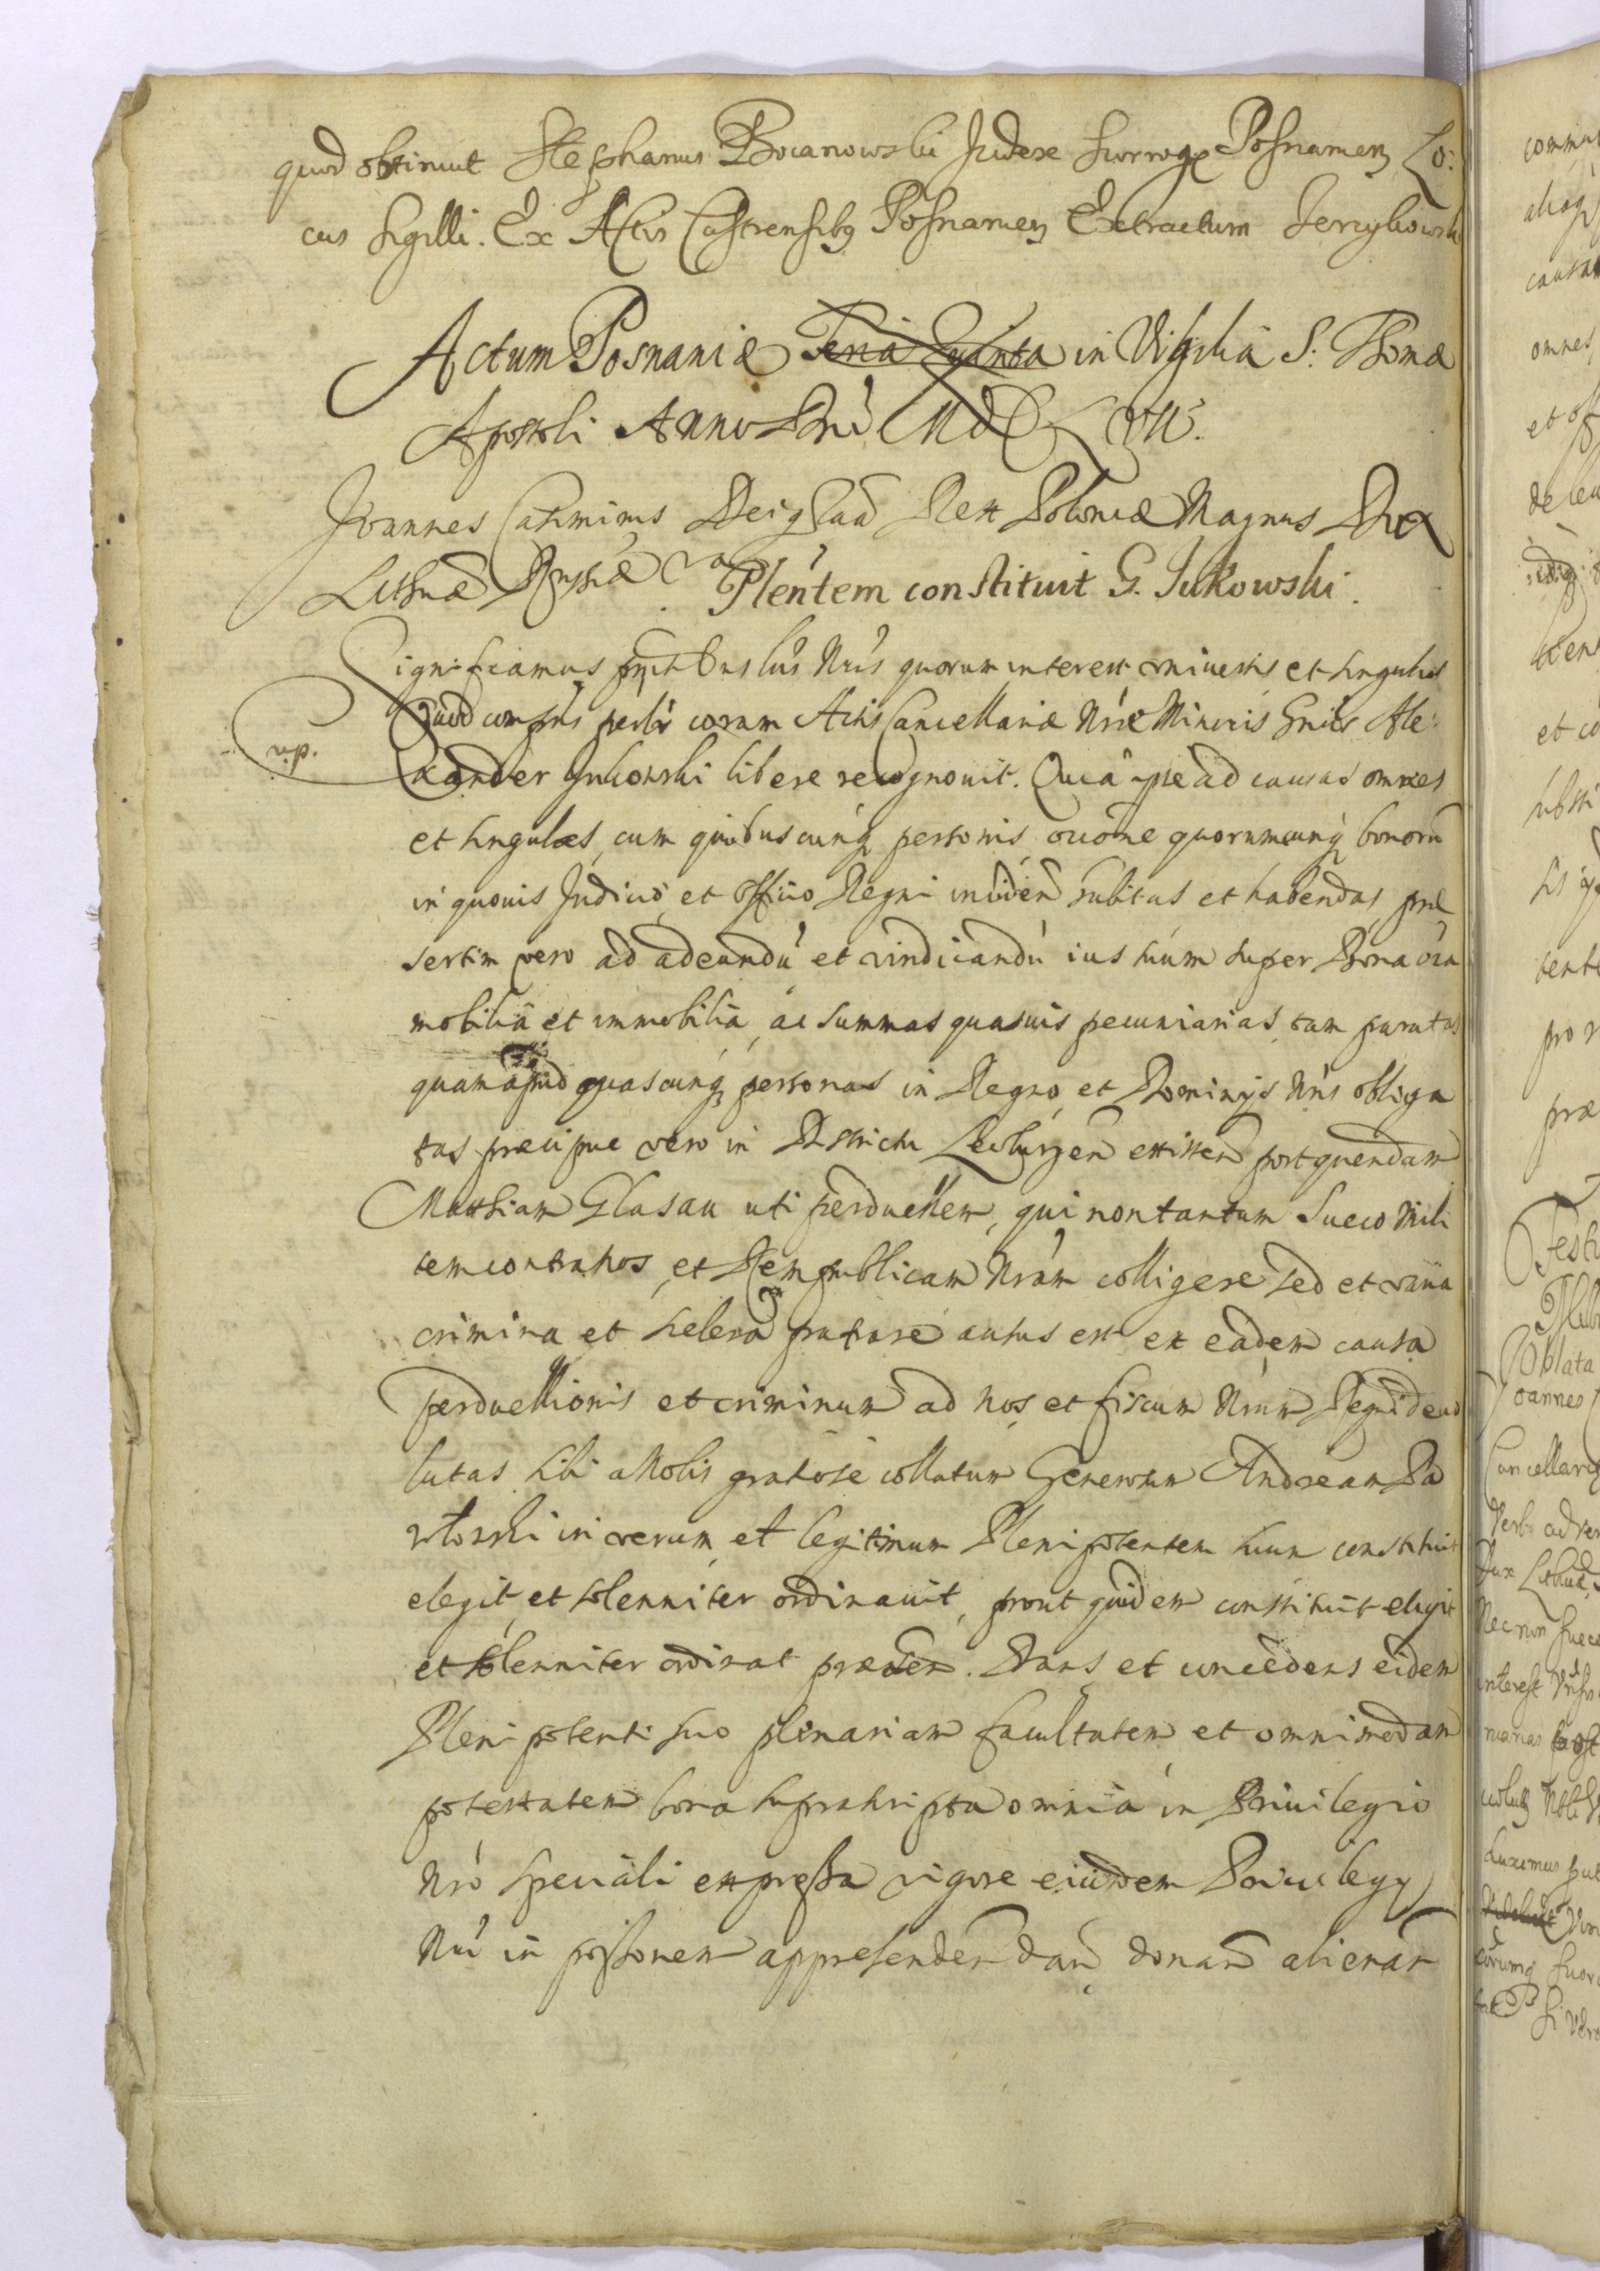 quod obtinuit Stephanus Bocianowski Judex Surrogg Posnanien Lo:
cus Sigilli. Ex Actis Castrensibg Posnanien Extractum Jerzykowski
Actum Posnaniæ Feria Quinta in Vigilia S: Thomæ
Apostoli Anno Dni MDCLVII.
Joannes Casimirus Dei gratia Rex Poloniæ Magnus Dux
Lithuæ Russiæ
Plentem constituit G. Jukowski.
Significamus pntibus lris Nris quorum interest universis et singulis
Quod comprns perslr coram Actis Cancellariæ Nræ Minoris Gnrs Ale:
vip.
xander Jukowski libere recognovit. Quia ipe ad causas omnes
et singulas, cum quibuscunq personis, rãone quorumcunq bonorũ
in quovis Judicio, et officio Regni inibidem subitas et habendas, præ
sertim vero ad adeundũ et vindicandũ ius suum super Bona oia
mobilia et immobilia, ac summas quasvis pecuniarias, tam paratas
quam apud quascunq personas in Regno et Dominijs Nris obliga
tas præcipue vero in Districtu Leoburgen existen post quendam
Matthiam Glasau uti perduellem, qui non tantum Sueco Mili
tem contra nos, et Rempublicam Nram colligere sed et varia
crimina et scelera patrare ausus est ex eadem causa
perduellionis et criminum ad nos, et fiscum Nrum Regni devo
lutas sibi a Nobis gratiose collatum Generosum Andream Pa
wlowski in verum et legitimum Plenipotentem suum constituit
elegit, et solenniter ordinavit, prout quidem constituit eligit
et solenniter ordinat præsen. Dans, et concedens eidem
Plenipotenti suo plenariam facultatem et omnimodam
potestatem bona suprascripta omnia in Privilegio
Nro speciali expressa vigore eiusdem Privilegy
Nri in possonem apprehenden dan donan alienan